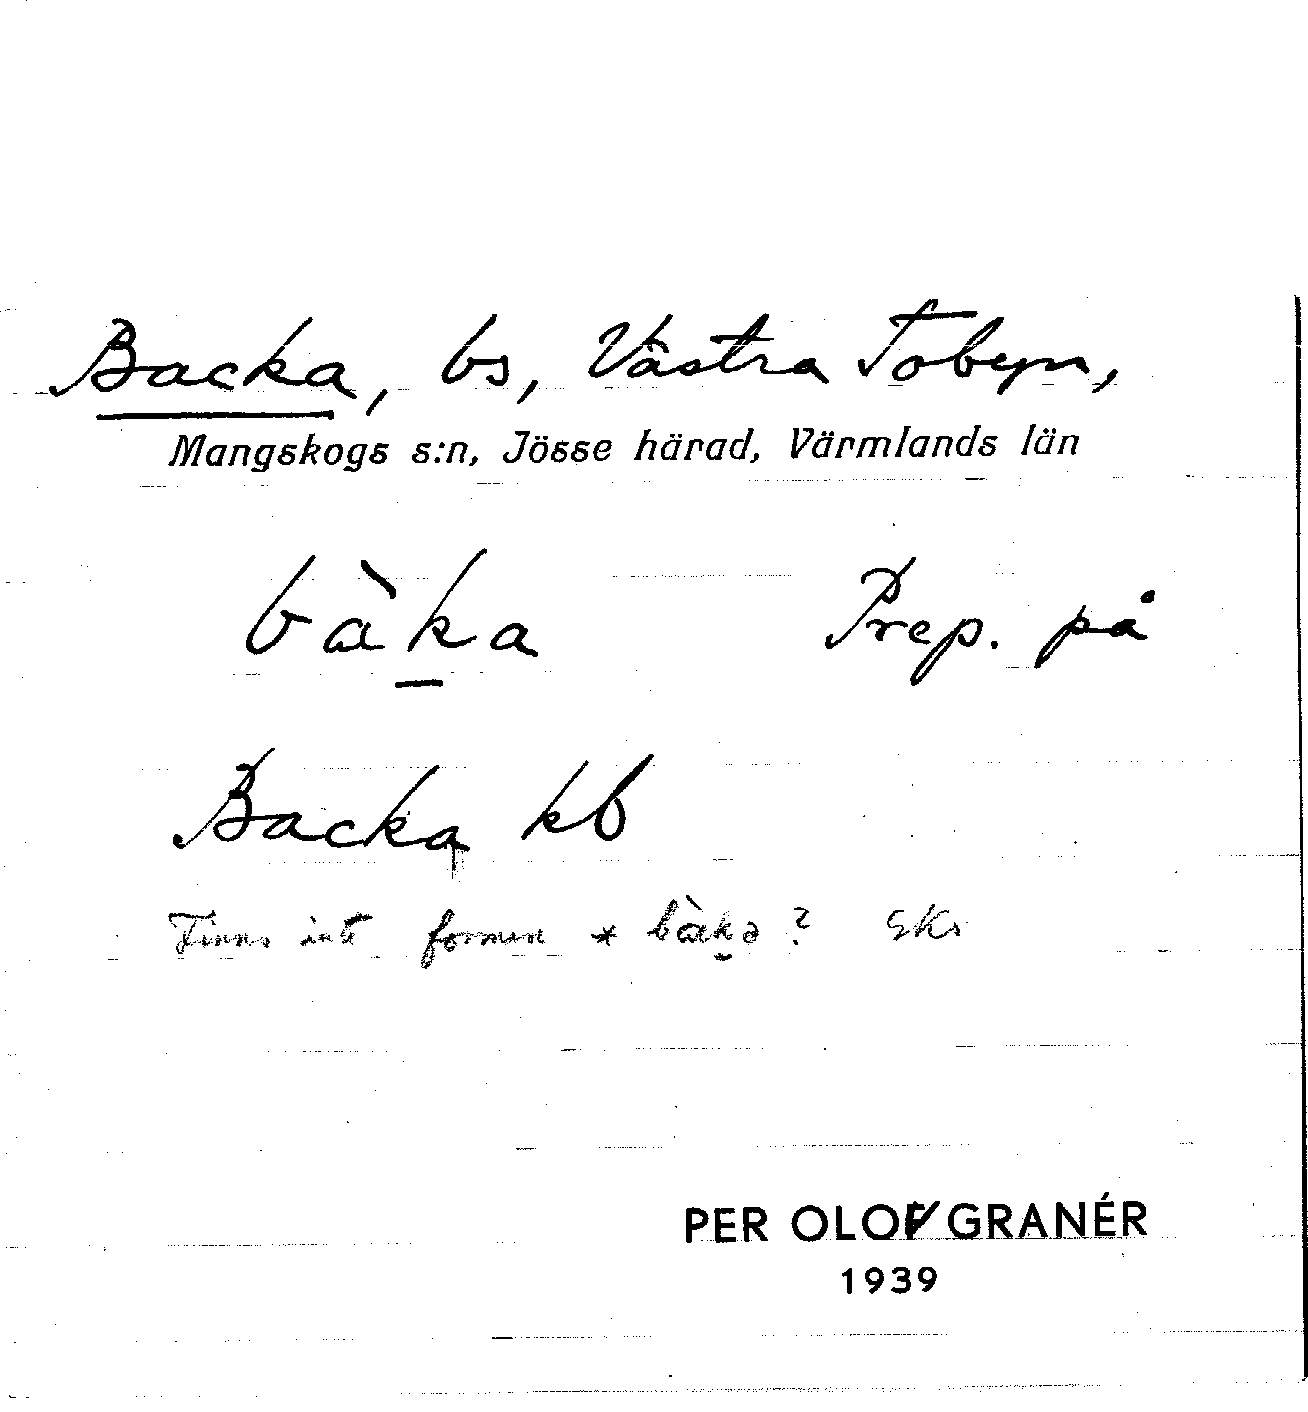 Backa, bs, Västra Tobyn,
Mangskogs s:n, Jösse härad, Värmlands län
bàka Prep. på
Backa kb
Finns inte formen * bàkə? SKs
PER OLOV GRANÉR
1939